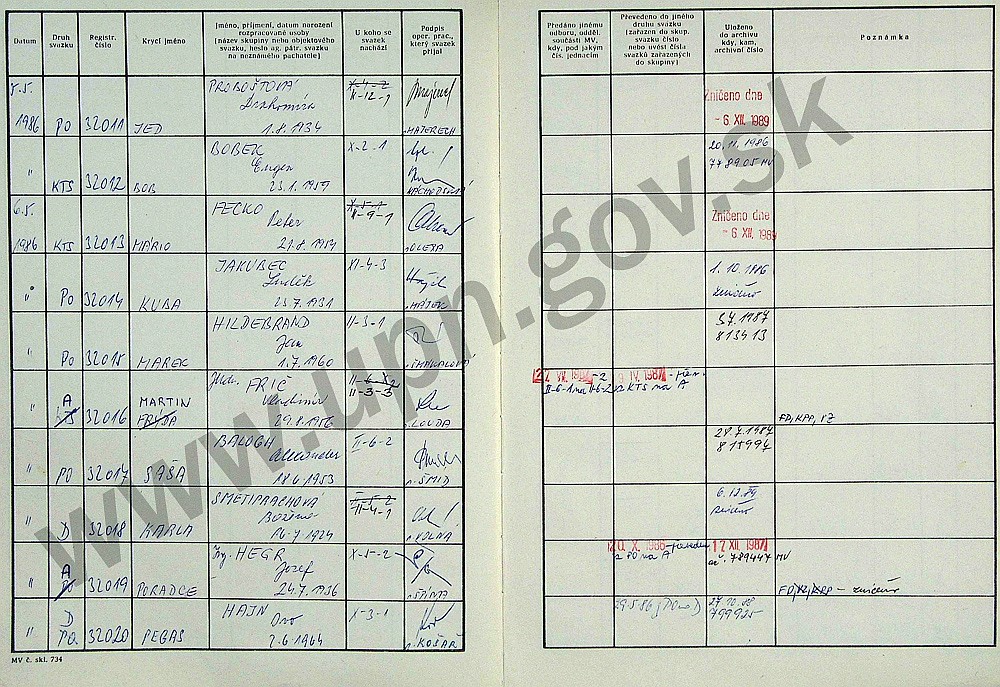 Datum
Druh svazku
Registr. číslo
Krycí jméno
Jméno, příjmení, datum narození
rozpracované osoby
(název skupiny nebo objektového
svazku, heslo ag. pátr. svazku
na neznámého pachatele)
U koho se
svazek
nachází
Podpis
oper. prac.,
který svazek
přijal
Předáno jinému
odboru, odděl.
součásti MV,
kdy, pod jakým
čís. jednacím
Převedeno do jiného
druhu svazku
(zařazen do skup.
svazku číslo
nebo uvést čísla
svazků zařazených
do skupiny)
Uloženo
do archivu
kdy, kam,
archivní číslo
Poznámka
5.5.
1986 PO 32011 JED
PROBOŠTOVÁ
Drahomíra
1.8.1934
X-4-2
II-12-1
MATERECH
Zničeno dne
- 6. XII. 1989
" KTS 32012 BOB
BOBEK
Eugen
23.1.1959
X-2-1
20.11.1986
778905 MV
6.5.
1986 KTS 32013 MÁRIO
FECKO
Peter
21.8.1954
X-5-1
II-9-1
Zničeno dne
- 6. XII. 1989
" PO 32014 KUBA
JAKUBEC
Luděk
23.7.1931
XI-4-3
HÁJEK
1.10.1986
zničeno
" PO 32015 MAREK
HILDEBRAND
Jan
1.7.1960
II-3-1
813413
" A
KTS 32016 MARTIN
FRÝDA
FRIČ
Vladimír
29.8.1956
II-3-3
LOUDA
II-6-1 na II-6-2
z KTS na A
" PO 32017 SAŠA
BALOGH
Alexander
18.6.1953
II-6-2
ŠMÍD
28.7.1987
815994
" D 32018 KARLA
SMETIPRACHOVÁ
Božena
16.7.1924
II-4-1
VOLNÁ
6.12.89
zničeno
" A
PO 32019 PORADCE
Ing. HEGR
Josef
24.7.1936
X-5-2
z PO na A
17. XII. 1987
789447 MV
" D
PO 32020 PEGAS
HAJN
Oto
2.6.1964
X-3-1
KOŠAŘ
29.5.86
27.10.88
799925
MV č. skl. 734
www.upn.gov.sk